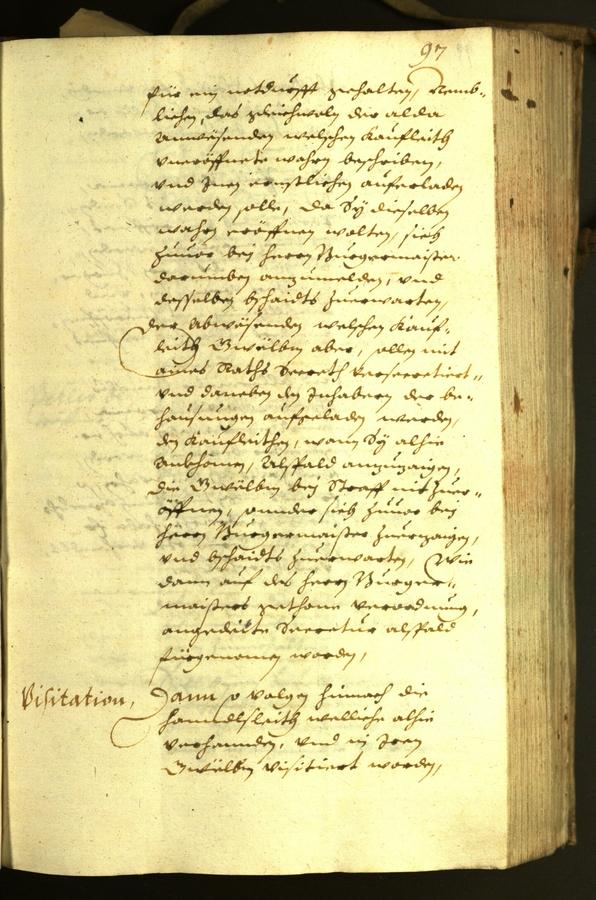 97
für ein notdurfft gehalten, Nemb-
lichen, das gleichwoln die alda
anwesenden welschen Kaufleith
uneröffnete wahrn beschriben,
und Inen ernstlichen auferladen
werden solle, da Sy dieselben
wahrn eröffnen wolten, sich
zuuor bei herrn Burgermaister
darumben anzumelden, und
desselben bschaidts zuerwarten,
der Abwesenden welschen Kauf-
leith Gwölber aber, sollen mit
aines Raths Secreth versecretiert
und daneben den Inhabern der be-
hausungen aufgeladen werden,
den Kaufleithen, wann Sy alhie
ankhomen, Alspald anzuzaigen,
die Gwölber bei Straff nit zuer-
öffnen, sonder sich zuuor bei
herrn Burgermaister zuerzaigen,
und bschaidts zuerwarten, Wie
dann auf des herrn Burger-
maisters gethone verordnung,
angedeite Secretur alspald
fürgenomen worden,
Visitation,
Dann so volgen hirnach die
handlsleith welliche alhie
verhannden, und in Iren
Gwölben visitiert worden,